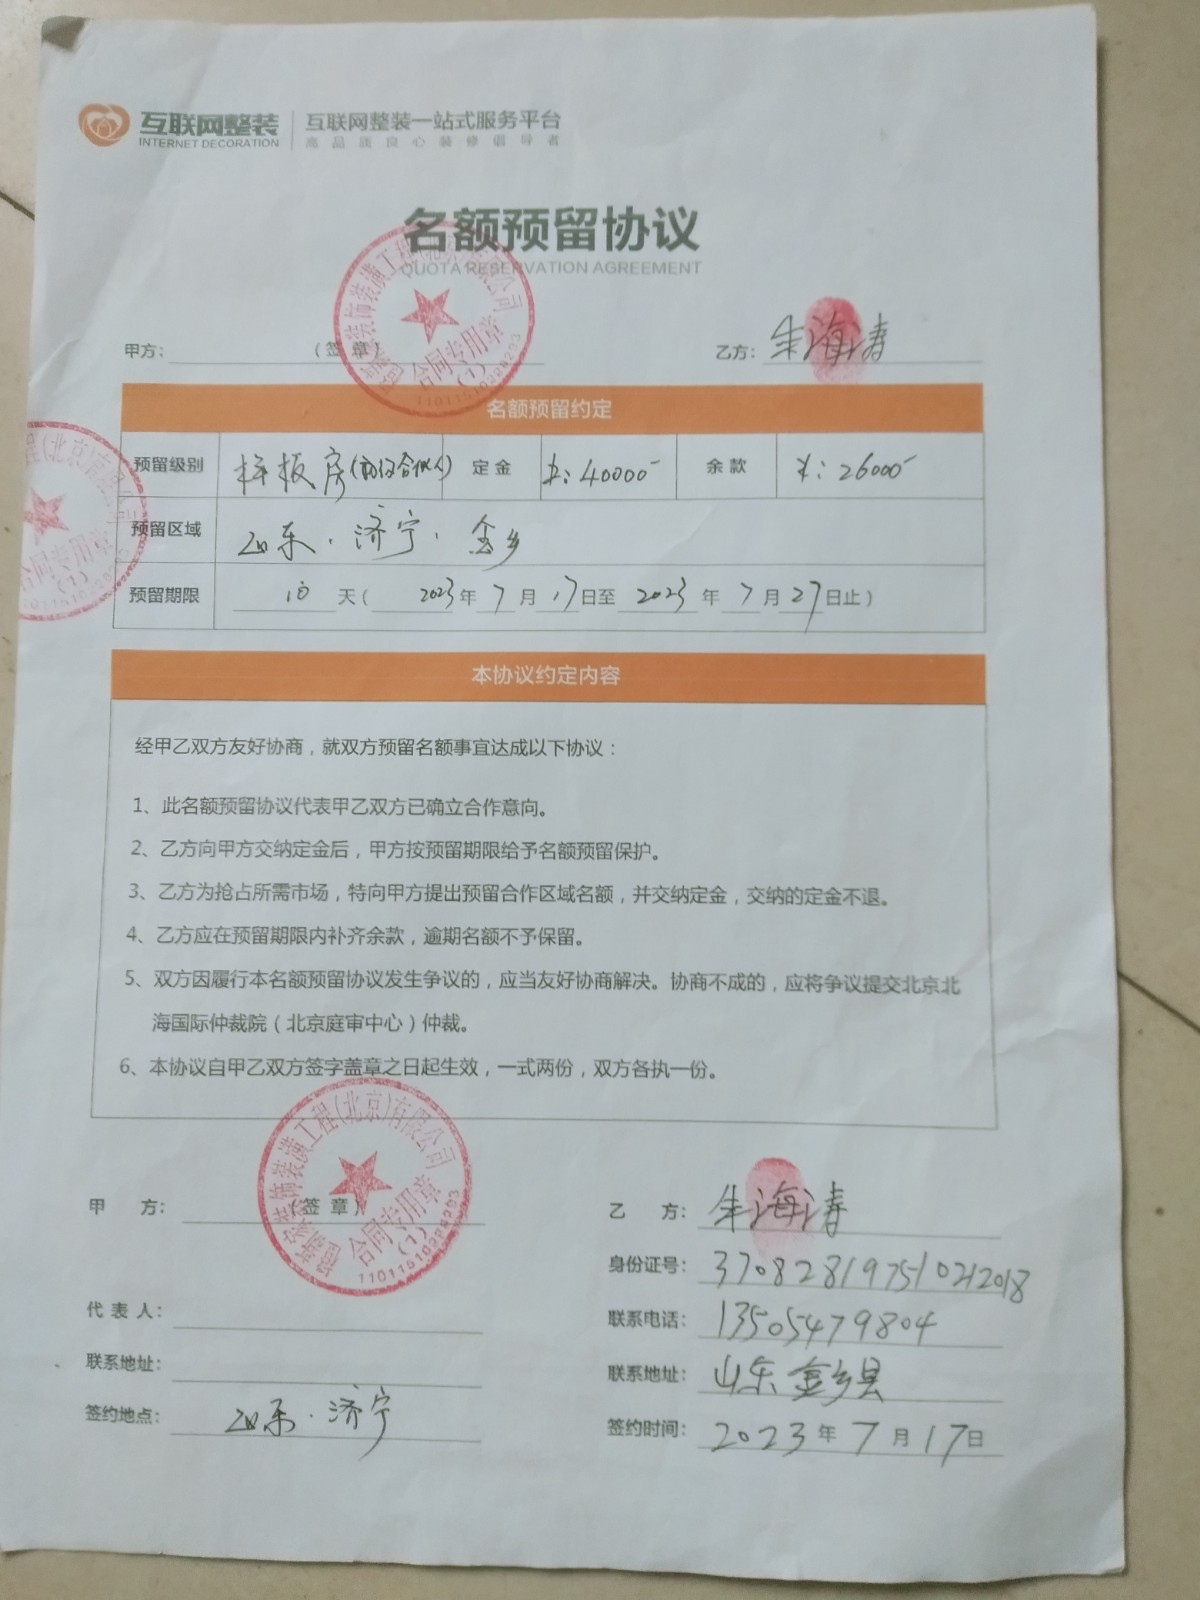 互联网整装 互联网整装一站式服务平台
INTERNET DECORATION 高品质良心装修倡导者
名额预留协议
QUOTA RESERVATION AGREEMENT
甲方： （签章） 乙方： 朱海涛
装饰装潢工程(北京)有限公司
合同专用章
(1)
名额预留约定
预留级别 样板房( 合伙人) 定金 ¥：40000 余款 ¥：26000
预留区域 山东·济宁·金乡
预留期限 10 天（ 2023 年 7 月 17 日至 2023 年 7 月 27 日止）
程(北京)有限公司
合同专用章
(1)
本协议约定内容
经甲乙双方友好协商，就双方预留名额事宜达成以下协议：
1、此名额预留协议代表甲乙双方已确立合作意向。
2、乙方向甲方交纳定金后，甲方按预留期限给予名额预留保护。
3、乙方为抢占所需市场，特向甲方提出预留合作区域名额，并交纳定金，交纳的定金不退。
4、乙方应在预留期限内补齐余款，逾期名额不予保留。
5、双方因履行本名额预留协议发生争议的，应当友好协商解决。协商不成的，应将争议提交北京北
海国际仲裁院（北京庭审中心）仲裁。
6、本协议自甲乙双方签字盖章之日起生效，一式两份，双方各执一份。
家装饰装潢工程(北京)有限公司
合同专用章
(1)
甲 方： （签章） 乙 方： 朱海涛
身份证号： 370828197510212018
代表人： 联系电话： 13505479804
联系地址： 联系地址： 山东金乡县
签约地点： 山东·济宁 签约时间： 2023 年 7 月 17 日